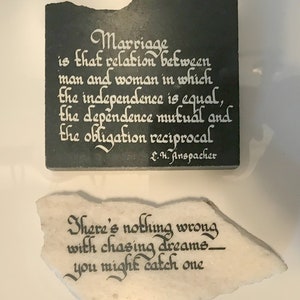 Marriage
is that relation between
man and woman in which
the independence is equal,
the dependence mutual and
the obligation reciprocal
L.K. Anspacher
There's nothing wrong
with chasing dreams—
you might catch one